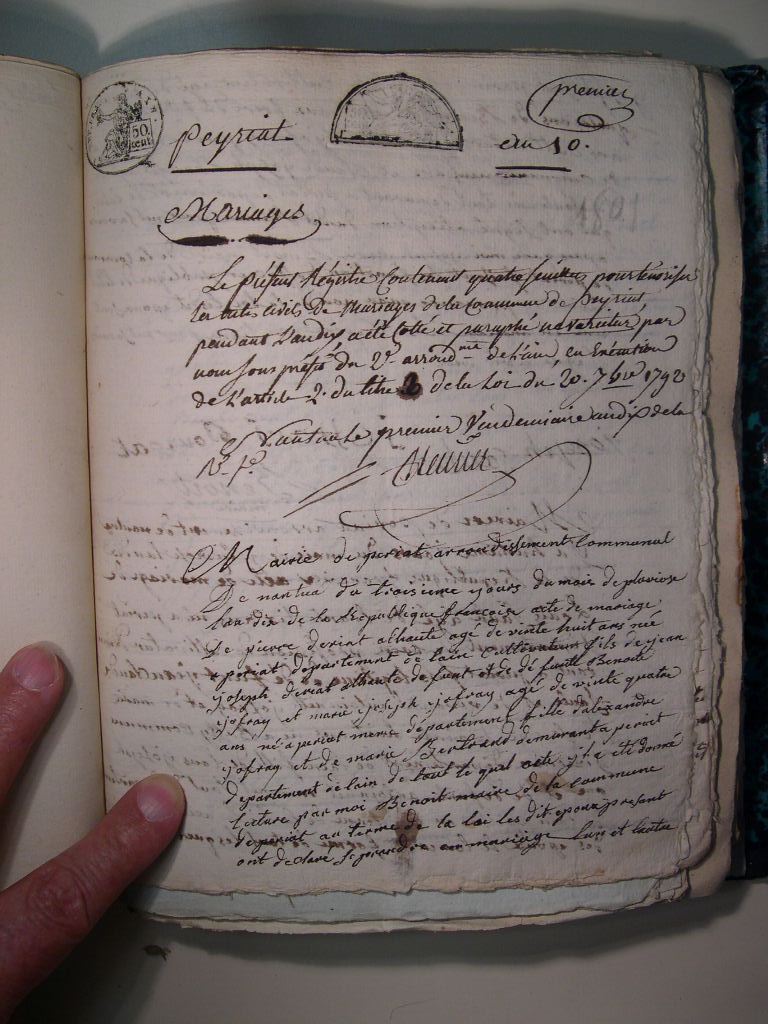 premier
50 cent
peyriat
an 10.
Mariages
Le présent Régistre Contenant quatre feuilles pour
les actes civils De Mariages de la Commune de peyriat,
pendant L'an dix, a été Cotté et paraphé ne varietur par
nous sous préfet du 2e. arrond.me de L'ain, en Exécution
de L'article 2. du titre 2 de la Loi du 20. 7bre 1792
Nantua le premier Vendemiaire an dix de la
R. f.
Mairie de periat arrondissement Communal
De nantua du troisieme jours du mois de pluviose
lan dix de la Republique françoise acte de mariage
De pierre deriat alhaute age de vinte huit ans née
a periat département de lain cultivateur fils de jean
joseph deriat alhante de funt et de de funte Benoite
jofray et marie joseph jofray agé de vinte quatre
ans né a periat meme departement fille dalexandre
jofray et de marie Bertrand demeurant a periat
departement de lain de tout le quel acte y la eté donné
lecture par moi Benoit maire de la commune
de periat au terme de la loi les dit epoux present
ont declare se prendre en mariage lun et lautre